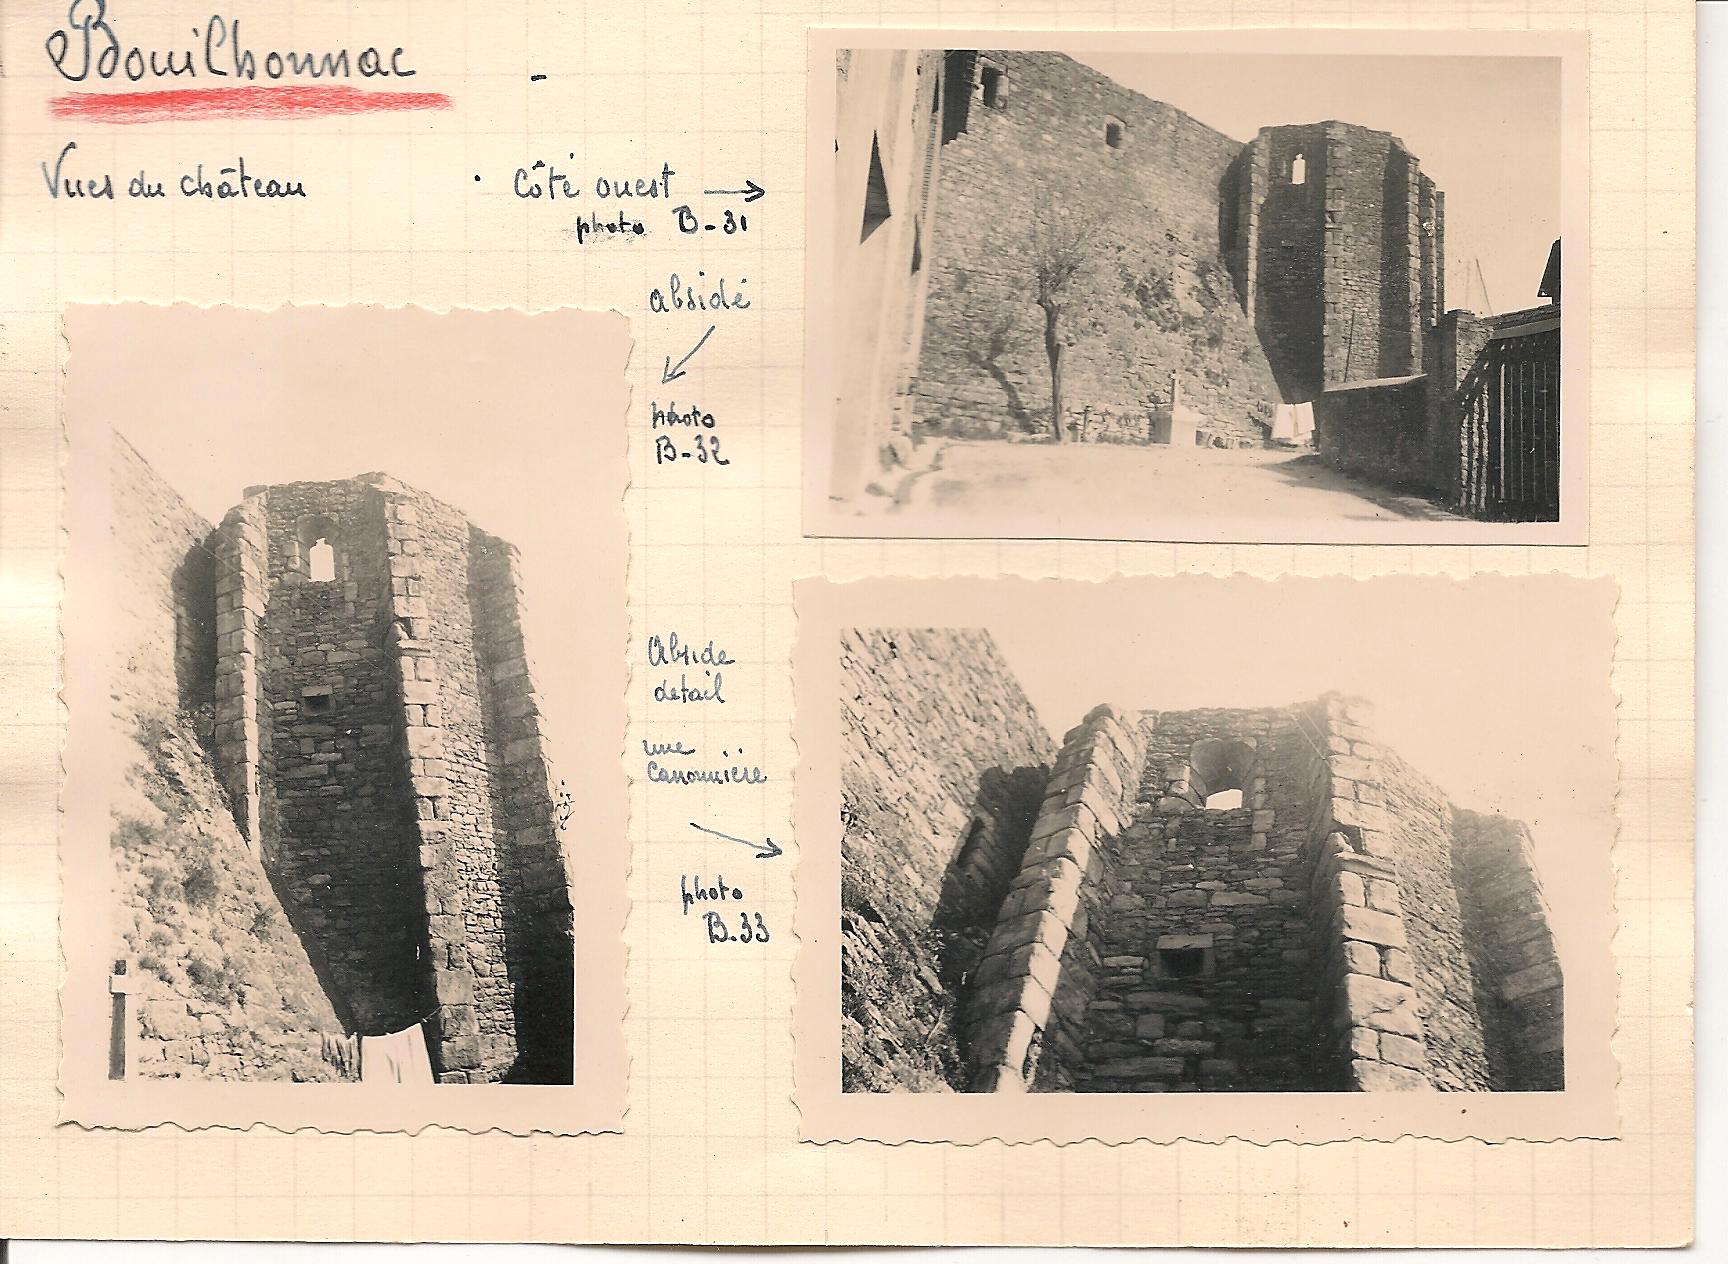 Bouilhonnac
Vues du château
Côté ouest
photo B-31
absidé
photo
B-32
Abside
detail
une
Canonnière
photo
B.33